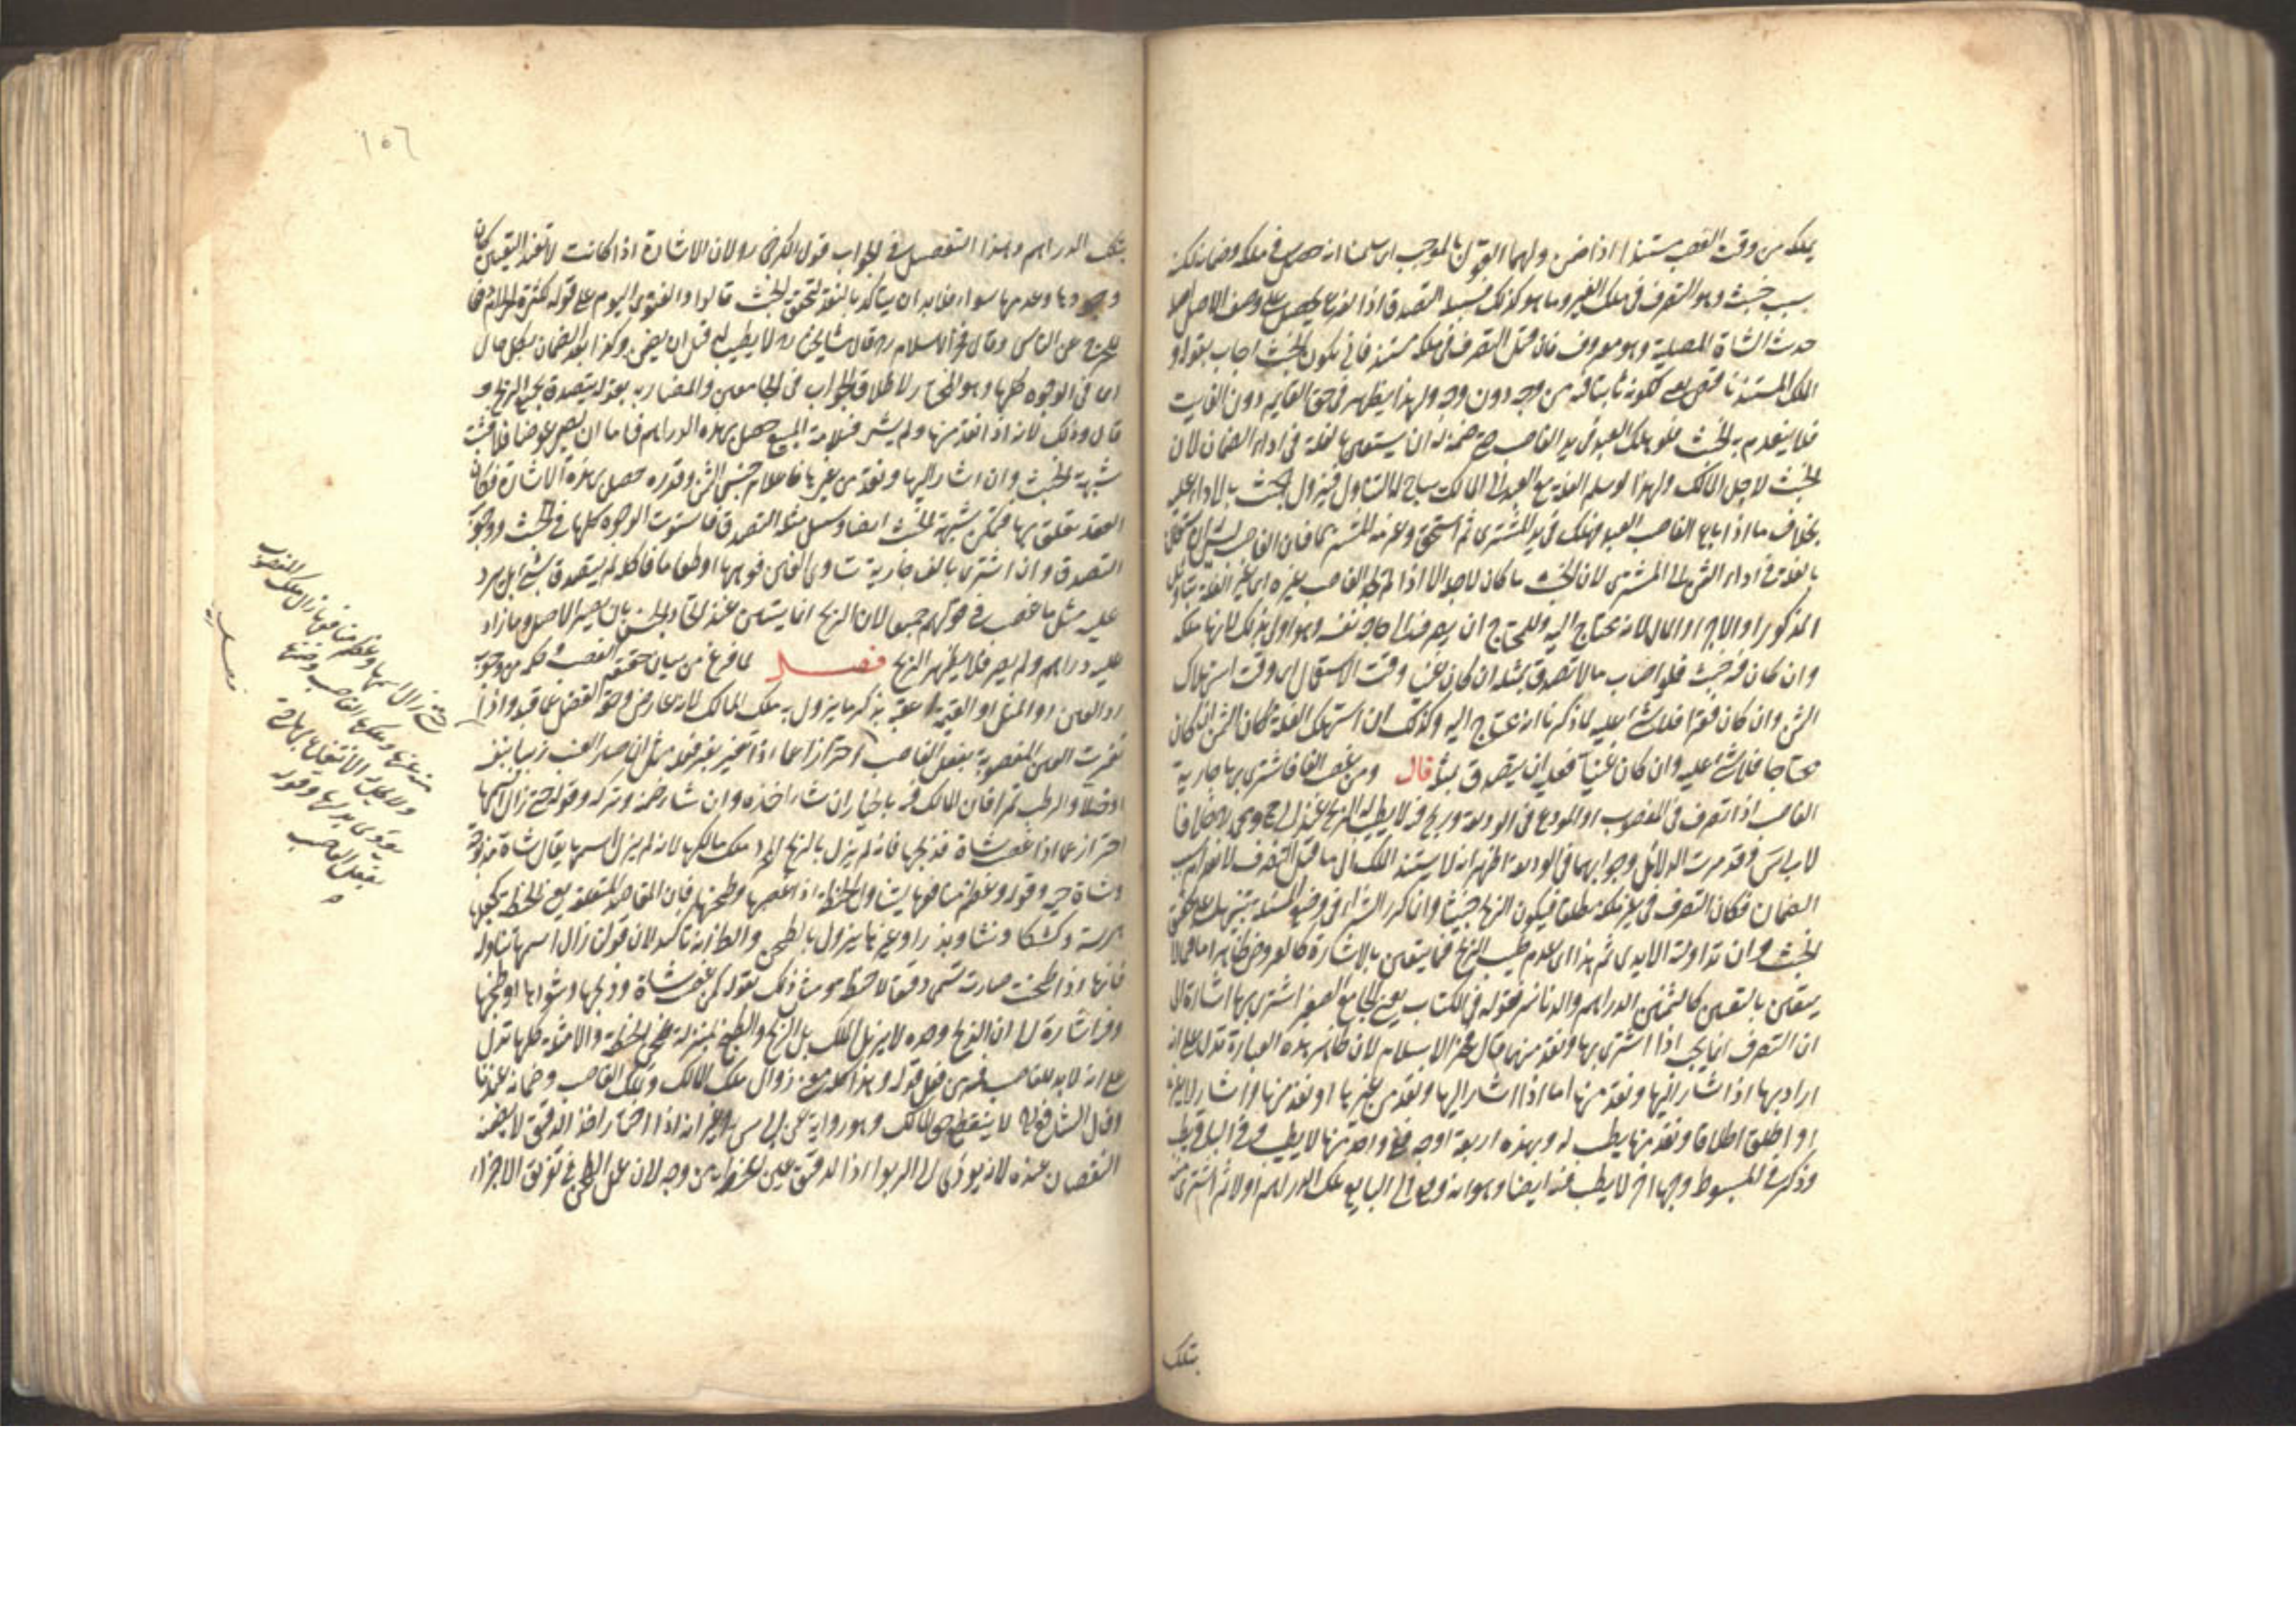 يملكه من وقت الغصب مستندا اذا ضمن ولهما القول بالموجب اى سلمنا انه حصل فى ملكه وضمانه لكنه
بسبب خبيث وهو التصرف فى ملك الغير وما هو كذلك فسبيله التصدق اذ الفرع يحصل على وصف الاصل اصله
حديث الشاة المصلية وهو معروف فان قيل التصرف فى ملكه مستند فانى يكون الخبث اجاب بقوله و
الملك المستند ناقص يعنى لكونه ثابتا فيه من وجه دون وجه ولهذا يظهر فى حق القايم دون الفايت
فلا ينعدم به الخبث فلو هلك العبد فى يد الغاصب حتى ضمنه له ان يستعين بالغلة فى اداء الضمان لان
الخبث لاجل المالك ولهذا لو سلم الغلة مع العبد الى المالك يباح له التناول فيزول الخبث بالاداء اليه
بخلاف ما اذا باع الغاصب العبد فهلك فى يد المشترى ثم استحق وغرمه المشترى فان الغاصب ليس له ان
بالغلة فى اداء الثمن الى المشترى لان الخبث ما كان لاجله الا اذا لم يجد الغاصب غيره اى غير الغلة بتاويل
المذكور او المال لانه يحتاج اليه وللمحتاج ان يصرفه الى حاجة نفسه وهو اولى بذلك لانها ملكه
وان كان فيه خبث فلو اصاب مالا تصدق بمثله ان كان غنيا وقت الاستعمال اى وقت استهلاك
الثمن وان كان فقيرا فلا شئ عليه لما ذكرنا انه محتاج اليه وكذلك ان استهلك الغلة مكان الثمن ان كان
محتاجا فلا شئ عليه وان كان غنيا فعليه ان يتصدق بمثله قال ومن غصب الفا فاشترى بها جارية
الغاصب اذا تصرف فى المغصوب او المودع فى الوديعة وربح فيه لا يطيب له الربح عند ابى ح ومحمد رح خلافا
لابى س وقد مرت الدلائل وجوابهما فى الوديعة اظهر انه لا يستند الملك الى ما قبل التصرف لانعدام سبب
الضمان فكان التصرف فى غير ملكه مطلقا فيكون الربح خبيثا وانما كرر الشراء فى وضع المسئلة
الخبث وان تداولته الايدى ثم هذا اى عدم طيب الربح فيما يتعين بالاشارة كالعروض ظاهر اما فيما لا
يتعين بالتعيين كالثمنين الدراهم والدنانير فقوله فى الكتاب يعنى الجامع الصغير اشترى بها اشارة الى
ان التصرف انما يجب اذا اشترى بها ونقد منها قال فخر الاسلام لان ظاهر هذه العبارة تدل على انه
اراد بها اذا اشار اليها ونقد منها اما اذا اشار اليها ونقد من غيرها او نقد منها واشار الى غيرها
او اطلق اطلاقا ونقد منها يطيب له وبهذه اربعة اوجه ففى واحد منها لا يطيب وفى الباقى يطيب
وذكر فى المبسوط وجها اخر لا يطيب فيه ايضا وهو انه دفع الى البايع تلك الدراهم اولا ثم اشترى منه
بتلك
١٥٦
بتلك الدراهم وهذا التفصيل فى الجواب قول الكرخى ره لان الاشارة اذا كانت لا تفيد التعيين كان
وجودها وعدمها سواء فلا بد ان يتاكد بالنقد لتحقق الخبث قالوا والفتوى اليوم على قوله لكثرة الحرام دفعا
للحرج عن الناس وقال فخر الاسلام ره قال مشايخنا ره لا يطيب له قبل ان يضمن وكذا بعد الضمان بكل حال
اى فى الوجوه كلها وهو المختار لاطلاق الجواب فى الجامعين والمضاربة بقوله يتصدق بجميع الربح و
قال وذلك لانه اذا نقد منها ولم يشر فسلامة المبيع حصل بهذه الدراهم فاما ان يصير عوضا فلا فثبت
شبهة الخبث وان اشار اليها ونقد من غيرها فاعلام جنس الثمن وقدره حصل بهذه الاشارة فكان
العقد متعلق بها فتمكن شبهة الخبث ايضا وسبيل مثله التصدق فاستوت الوجوه كلها فى الخبث ووجوب
التصدق وان اشترى بالف جارية تساوى الفين فوهبها او طعاما فاكله لم يتصدق بشئ بل يرد
عليه مثل ما غصب فى قولهم جميعا لان الربح انما يتبين عند اتحاد الجنس بان يصير الاصل وما زاد
عليه دراهم ولم يصر فلا يظهر الربح فصل لما فرغ من بيان حقيقة الغصب وحكمه من وجوب
رد العين او المثل او القيمة اعقبه بذكر ما يزول به ملك المالك لانه عارض وحقه الفصل عما قبله واذا
تغيرت العين المغصوبة بفعل الغاصب احترازا عما اذا تغير بغير فعله مثل ان صار العنب زبيبا بنفسه
او خلا والرطب تمرا فان المالك فيه بالخيار ان شاء اخذه وان شاء ضمنه وتركه وقوله حتى زال اسمها
احتراز عما اذا غصب شاة فذبحها فانه لم يزل بالذبح المجرد ملك مالكها لانه لم يزل اسمها يقال شاة مذبوحة
وشاة حية وقوله وعظم منافعها يتناول الحنطة اذا غصبها وطحنها فان المقاصد المتعلقة بعين الحنطة كجعلها
هريسة وكشكا ونشا وبذرا وغيرها يزول بالطحن والظاهر انه تاكيد لان قوله زال اسمها يتناوله
فانها اذا طحنت صارت تسمى دقيقا لا حنطة ومثل ذلك بقوله كمن غصب شاة وذبحها وشواها او طبخها
وفيه اشارة الى ان الذبح وحده لا يزيل الملك بل الذبح والطبخ بمنزلة طحن الحنطة والامثلة كلها تدل
على انه لا بد للغاصب فيه من فعل قوله وهذا كله يعنى زوال ملك المالك وتملك الغاصب وضمانه عندنا
وقال الشافعى ره لا ينقطع حق المالك وهو رواية عن ابى س ره غير انه اذا اختار اخذ الدقيق لا يضمنه
النقصان عنده لانه يودى الى الربوا اذ الدقيق عين الحنطة من وجه لان عمل الطحن فى تفريق الاجزاء
حتى زال اسمها وعظم منافعها زال ملك المغصوب
منه عنها وملكها الغاصب وضمنها
ولا يحل له الانتفاع بها حتى
يؤدى بدلها وقوله
بفعل الغاصب